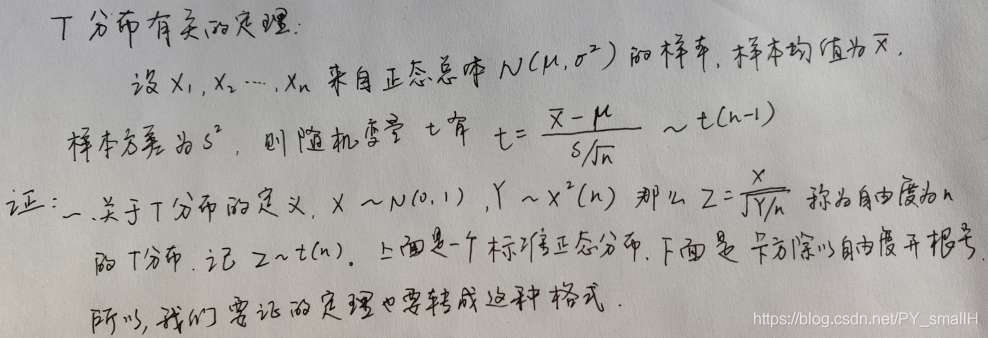 T分布有关的定理:
设 X₁, X₂ …, Xₙ 来自正态总体 N(μ, σ²) 的样本, 样本均值为 x̄,
样本方差为 s², 则随机变量 t 有 t = (x̄ - μ)/(s/√n) ~ t(n-1)
证: 一、关于T分布的定义, X ~ N(0,1), Y ~ X²(n) 那么 Z = X/√(Y/n) 称为自由度为n
的T分布, 记 Z ~ t(n)。上面是一个标准正态分布, 下面是 卡方除以自由度开根号.
所以, 我们要证的定理也要转成这种格式.
https://blog.csdn.net/PY_smallH